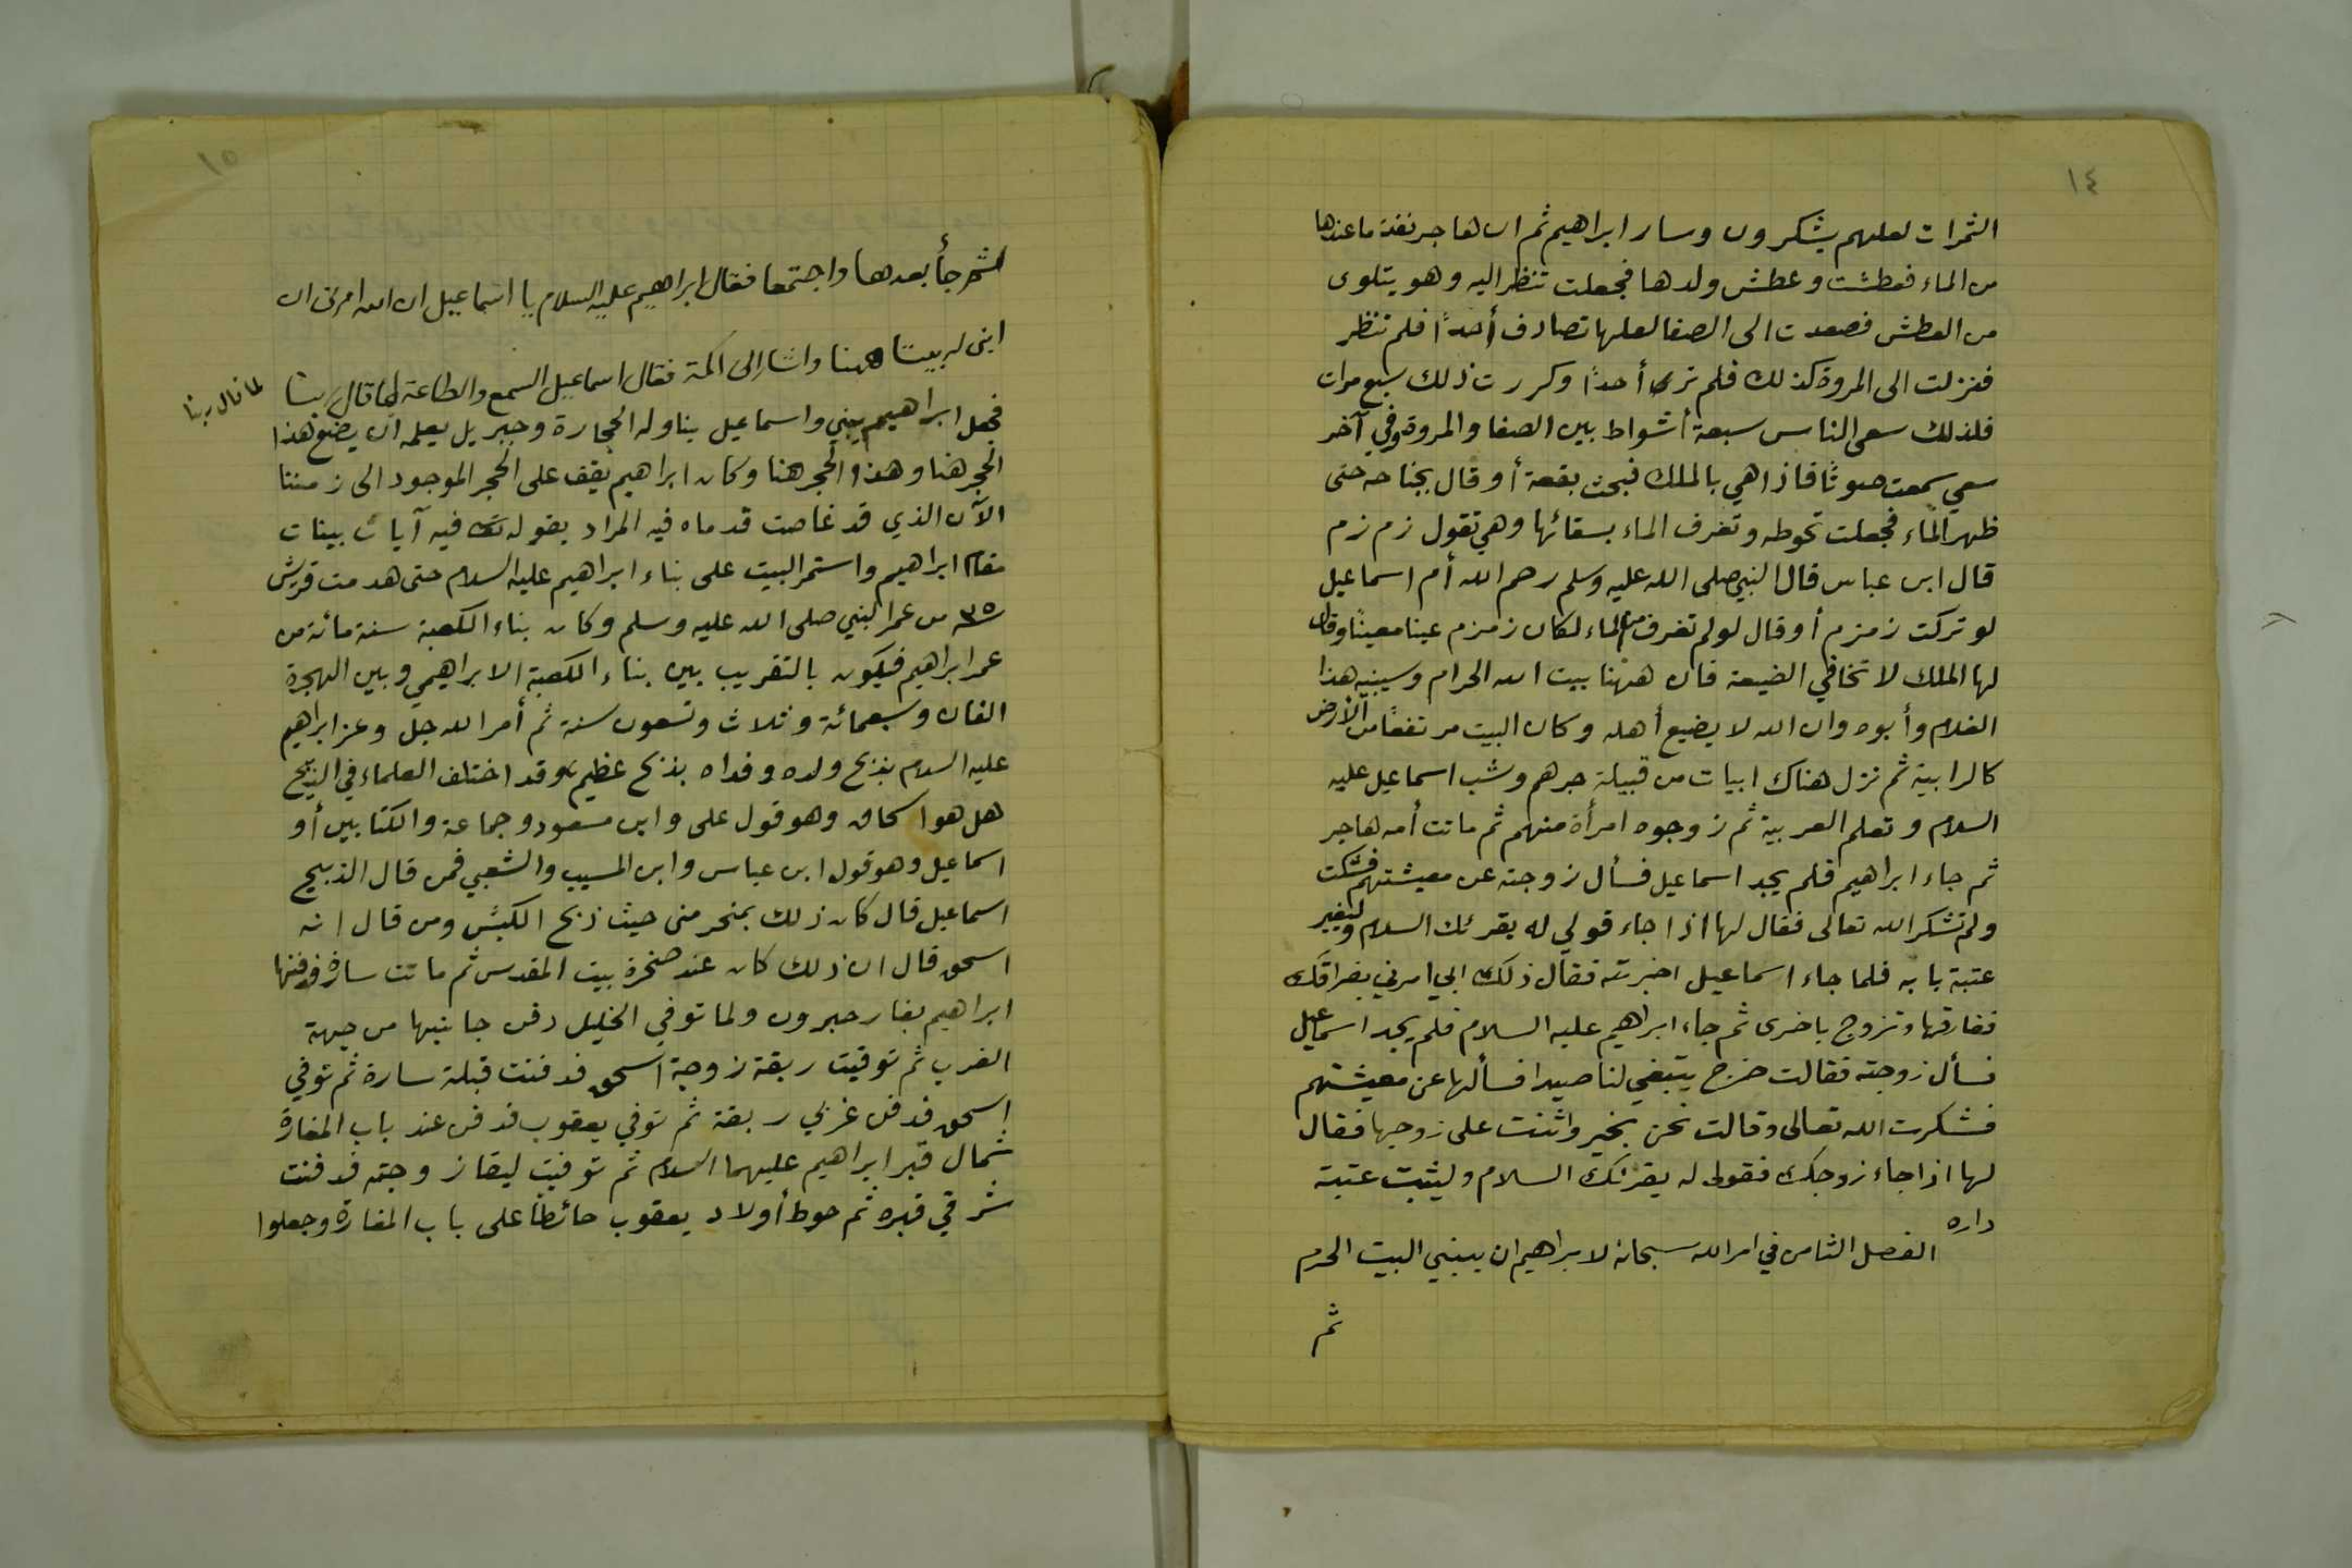 ١٤
الثمرات لعلهم يشكرون وسار ابراهيم ثم ان هاجر نفذ ما عندها
من الماء فعطشت وعطش ولدها فجعلت تنظر اليه وهو يتلوى
من العطش فصعدت الى الصفا لعلها تصادف أحداً فلم تنظر
فنزلت الى المروة كذلك فلم تر أحداً وكررت ذلك سبع مرات
فلذلك سعى الناس سبعة أشواط بين الصفا والمروة وفي آخر
سعي سمعت صوتاً فاذا هي بالملك فبحث بقعة أو قال بجناحه حتى
ظهر الماء فجعلت تحوطه وتغرف الماء بسقائها وهي تقول زم زم
قال ابن عباس قال النبي صلى الله عليه وسلم رحم الله أم اسماعيل
لو تركت زمزم أو قال لو لم تغرف من الماء لكان زمزم عينا معيناً وقال
لها الملك لا تخافي الضيعة فان ههنا بيت الله الحرام وسيبنيه هذا
الغلام وأبوه وان الله لا يضيع أهله وكان البيت مرتفعاً من الأرض
كالرابية ثم نزل هناك ابيات من قبيلة جرهم وشب اسماعيل عليه
السلام وتعلم العربية ثم زوجوه امرأة منهم ثم ماتت أمه هاجر
ثم جاء ابراهيم فلم يجد اسماعيل فسأل زوجته عن معيشتهم فشكت
ولم تشكر الله تعالى فقال لها اذا جاء قولي له يقرئك السلام وليغير
عتبة بابه فلما جاء اسماعيل اخبرته فقال ذلك ابي امرني بفراقك
ففارقها وتزوج باخرى ثم جاء ابراهيم عليه السلام فلم يجد اسماعيل
فسأل زوجته فقالت خرج يبتغي لنا صيدا فسألها عن معيشتهم
فشكرت الله تعالى وقالت نحن بخير واثنت على زوجها فقال
لها اذا جاء زوجك فقولي له يقرئك السلام وليثبت عتبة
داره
الفصل الثامن في امر الله سبحانه لابراهيم ان يبني البيت الحرم
ثم
١٥
ثم جأ بعدها واجتمعا فقال ابراهيم عليه السلام يا اسماعيل ان الله امرني ان
ابني له بيتا ههنا واشار الى اكمة فقال اسماعيل السمع والطاعة لما قال ربنا
لما قال ربنا
فجعل ابراهيم يبني واسماعيل يناوله الحجارة وجبريل يعلمه ان يضع هذا
الحجر هنا وهذا الحجر هنا وكان ابراهيم يقف على الحجر الموجود الى زمننا
الآن الذي قد غاصت قدماه فيه المراد بقوله فيه آيات بينات
مقام ابراهيم واستمر البيت على بناء ابراهيم عليه السلام حتى هدمت قريش
٣٥ من عمر النبي صلى الله عليه وسلم وكان بناء الكعبة سنة مائة من
عمر ابراهيم فيكون بالتقريب بين بناء الكعبة الابراهيمي وبين الهجرة
الفان وسبعمائة وثلاث وتسعون سنة ثم أمر الله جل وعز ابراهيم
عليه السلام بذبح ولده وفداه بذبح عظيم وقد اختلف العلماء في الذبيح
هل هو اسحاق وهو قول على وابن مسعود وجماعة والكتابين أو
اسماعيل وهو قول ابن عباس وابن المسيب والشعبي فمن قال الذبيح
اسماعيل قال كان ذلك بمنحر منى حيث ذبح الكبش ومن قال انه
اسحق قال ان ذلك كان عند صخرة بيت المقدس ثم ماتت سارة فدفنها
ابراهيم بغار حبرون ولما توفي الخليل دفن جانبها من جهة
الغرب ثم توفيت ربقة زوجة اسحق فدفنت قبلة سارة ثم توفي
اسحق فدفن غربي ربقة ثم توفي يعقوب فدفن عند باب المغارة
شمال قبر ابراهيم عليهما السلام ثم توفيت ليقا زوجته فدفنت
شرقي قبره ثم حوط أولاد يعقوب حائطاً على باب المغارة وجعلوا